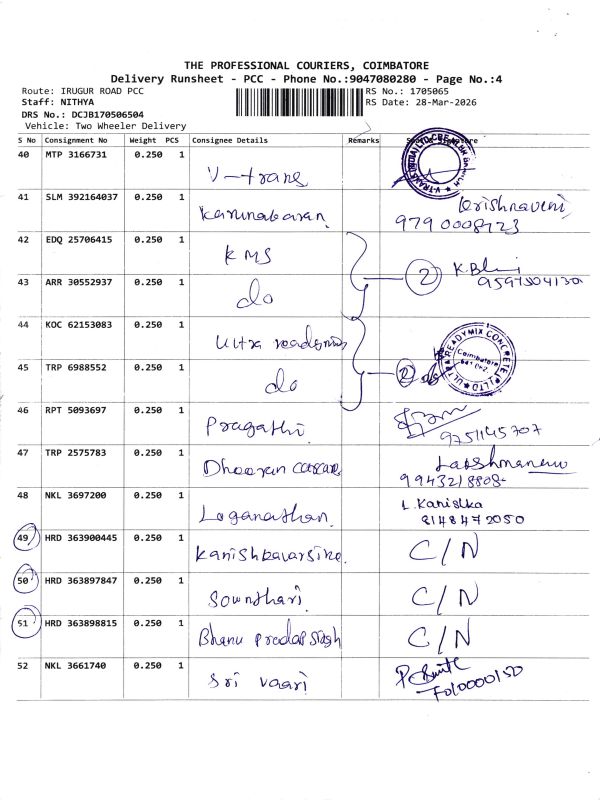 THE PROFESSIONAL COURIERS, COIMBATORE
Delivery Runsheet - PCC - Phone No.:9047080280 - Page No.:4
Route: IRUGUR ROAD PCC
RS No.: 1705065
Staff: NITHYA
RS Date: 28-Mar-2026
DRS No.: DCJB170506504
Vehicle: Two Wheeler Delivery
S No Consignment No Weight PCS Consignee Details Remarks
40 MTP 3166731 0.250 1 V-trans
41 SLM 392164037 0.250 1 Karunakaran Krishnaveni
9790008923
42 EDQ 25706415 0.250 1 KMS
2
43 ARR 30552937 0.250 1 do
44 KOC 62153083 0.250 1 Ultra readymix
ULTRA READYMIX CONCRETE (P) LTD
Coimbatore
45 TRP 6988552 0.250 1 do 2
46 RPT 5093697 0.250 1 Pragathi
9751145707
47 TRP 2575783 0.250 1 Lakshmanan
9943218808
48 NKL 3697200 0.250 1 Loganathan L. Kanishka
8148472050
49 HRD 363900445 0.250 1 C/N
50 HRD 363897847 0.250 1 Sownthari C/N
51 HRD 363898815 0.250 1 Bhanu C/N
52 NKL 3661740 0.250 1 Sri vaari